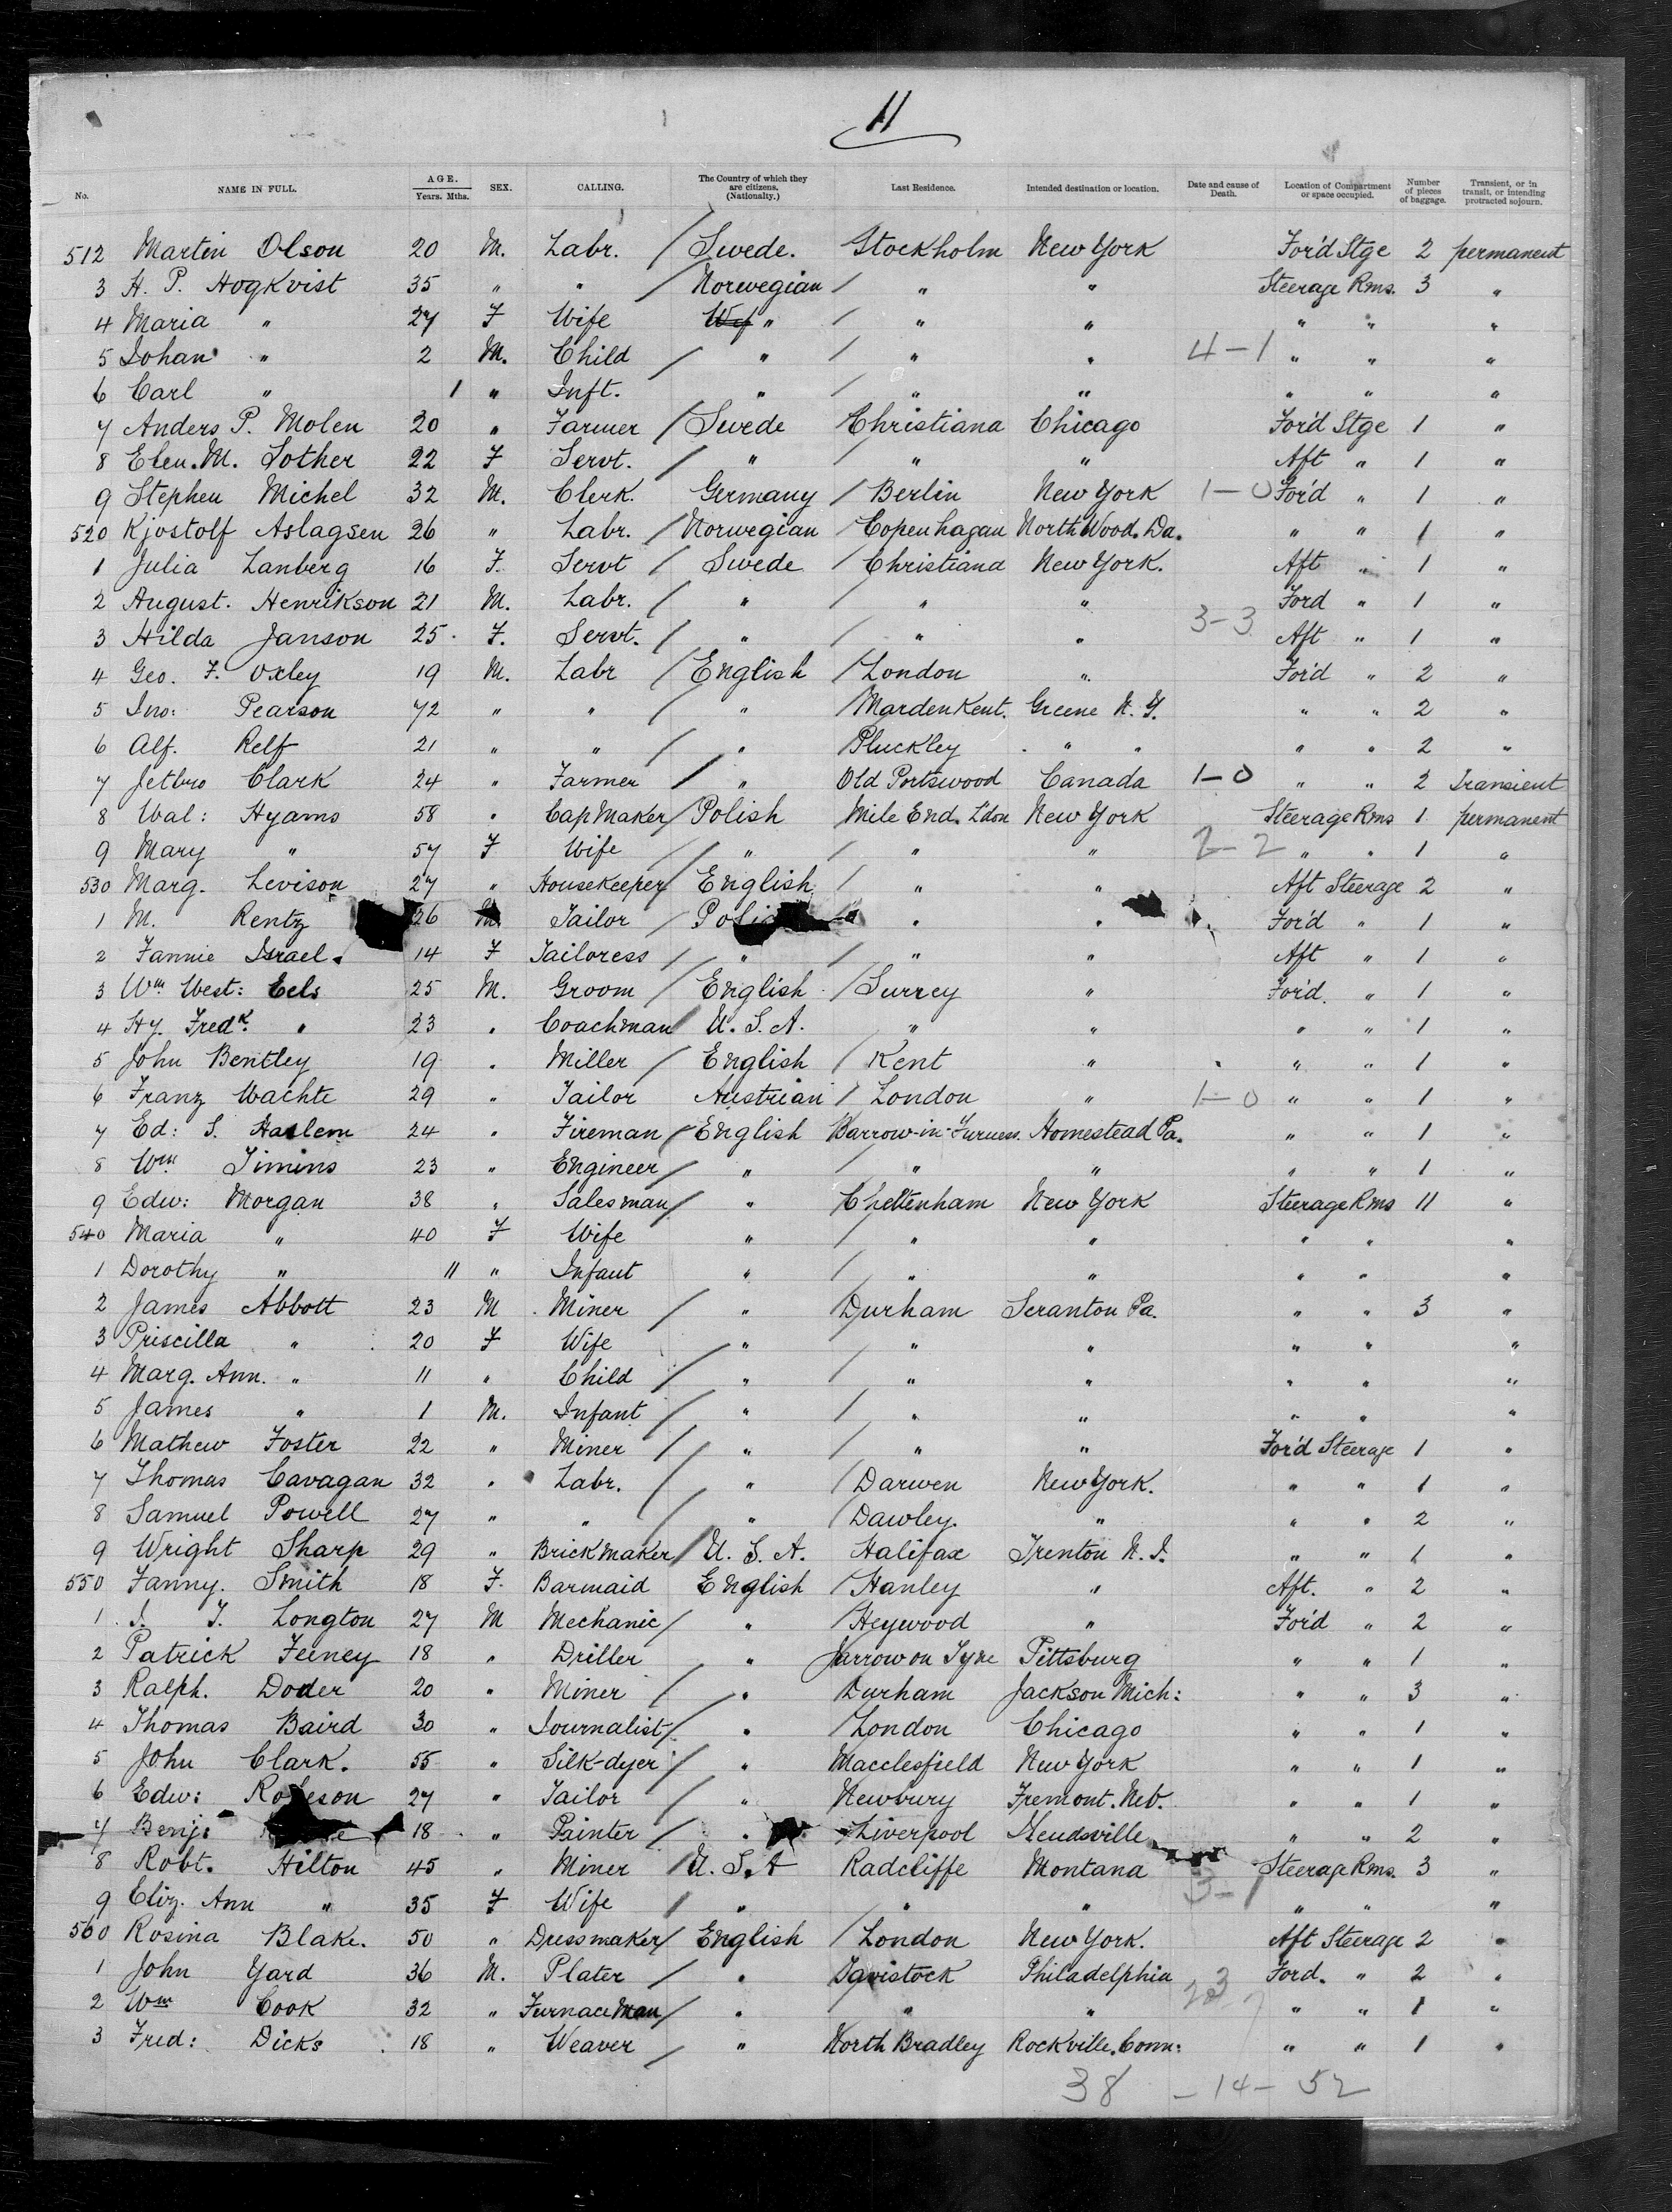 11
No. NAME IN FULL. AGE. Years. Mths. SEX. CALLING. The Country of which they are citizens. (Nationality.) Last Residence. Intended destination or location. Date and cause of Death. Location of Compartment or space occupied. Number of pieces of baggage. Transient, or in transit, or intending protracted sojourn.
512 Martin Olson 20 M. Labr. / Swede. Stockholm New York For'd Stge 2 permanent
3 H. P. Hogkvist 35 " " / Norwegian / " " Steerage Rms. 3 "
4 Maria " 27 F Wife " / " " " " "
5 Johan " 2 M. Child / " / " " 4-1 " " "
6 Carl " 1 " Inft. " / " " " " "
7 Anders P. Molen 20 " Farmer / Swede Christiana Chicago For'd Stge 1 "
8 Elen. M. Lother 22 F Servt. / " / " " Aft " 1 "
9 Stephen Michel 32 M. Clerk. Germany / Berlin New York 1-0 For'd " 1 "
520 Kjostolf Aslagsen 26 " Labr. / Norwegian / Copenhagan North Wood. Da. " " 1 "
1 Julia Lanberg 16 F. Servt / Swede / Christiana New York. Aft " 1 "
2 August. Henrikson 21 M. Labr. / " / " " Ford " 1 "
3 Hilda Janson 25 F. Servt. / " / " " 3-3 Aft " 1 "
4 Geo. F. Oxley 19 M. Labr / English / London " For'd " 2 "
5 Jno: Pearson 72 " " / " / Marden Kent. Greene N. Y. " " 2 "
6 Alf. Relf 21 " " / " / Pluckley " " " " 2 "
7 Jethro Clark 24 " Farmer / " Old Portswood Canada 1-0 " " 2 Transient
8 Wal: Hyams 58 " Cap Maker / Polish / Mile End. L'don New York Steerage Rms 1 permanent
9 Mary " 57 F Wife / " / " " 2-2 " " 1 "
530 Marg. Levison 27 " Housekeeper / English / " " Aft Steerage 2 "
1 M. Rentz 26 M. Tailor / " " For'd " 1 "
2 Fannie Israel. 14 F Tailoress / " / " " Aft " 1 "
3 Wm West: Eels 25 M. Groom / English / Surrey " For'd. " 1 "
4 Hy. Fredk. " 23 " Coachman / U. S. A. " " " " 1 "
5 John Bentley 19 " Miller / English / Kent " " " 1 "
6 Franz Wachte 29 " Tailor Austrian / London " 1-0 " " 1 "
7 Ed: S. Haslem 24 " Fireman / English Barrow-in-Furness. Homestead Pa. " " 1 "
8 Wm. Timins 23 " Engineer / " / " " " " 1 "
9 Edw: Morgan 38 " Salesman / " Cheltenham New York Steerage Rms 11 "
540 Maria " 40 F Wife " / " " " " "
1 Dorothy " 11 " Infant " / " " " " "
2 James Abbott 23 M Miner / " / Durham Scranton Pa. " " 3 "
3 Priscilla " 20 F Wife " " " " " "
4 Marg. Ann. " 11 " Child / " / " " " " "
5 James " 1 M. Infant / " / " " " " "
6 Mathew Foster 22 " Miner / " / " " For'd Steerage 1 "
7 Thomas Cavagan 32 " Labr. / " / Darwen New York. " " 1 "
8 Samuel Powell 27 " " / " / Dawley. " " " 2 "
9 Wright Sharp 29 " Brick maker / U. S. A. Halifax Trenton N. J. " " 1 "
550 Fanny. Smith 18 F. Barmaid English / Hanley " Aft. " 2 "
1 J. T. Longton 27 M Mechanic / " / Heywood " For'd " 2 "
2 Patrick Feeney 18 " Driller " Jarrow on Tyne Pittsburg " " 1 "
3 Ralph. Doder 20 " Miner / " / Durham Jackson Mich: " " 3 "
4 Thomas Baird 30 " Journalist / " / London Chicago " " 1 "
5 John Clark. 55 " Silk-dyer / " Macclesfield New York " " 1 "
6 Edw: 27 " Tailor / " / Newbury Fremont. Neb. " " 1 "
7 Benj: 18 " Painter / " Liverpool " " 2 "
8 Robt. Hilton 45 " Miner / U. S. A Radcliffe Montana Steerage Rms. 3 "
9 Eliz. Ann " 35 F Wife / " " " 3-1 " " "
560 Rosina Blake. 50 " Dressmaker / English / London New York. Aft Steerage 2 "
1 John Yard 36 M. Plater / " Tavistock Philadelphia Ford. " 2 "
2 Wm Cook 32 " Furnace Man / " " " " " 1 "
3 Fred: Dicks 18 " Weaver / " North Bradley Rockville. Conn: " " 1 "
38 - 14 - 52